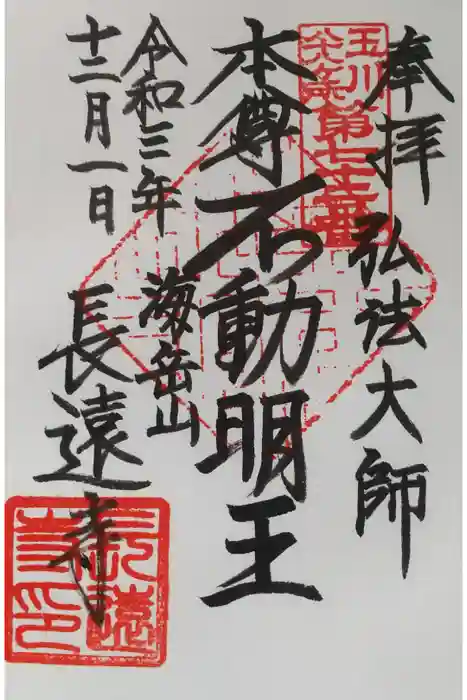 奉拝 弘法大師
玉川
八十八ヶ所
第七十番
本尊 不動明王
令和三年
十二月一日
海岳山
長遠寺